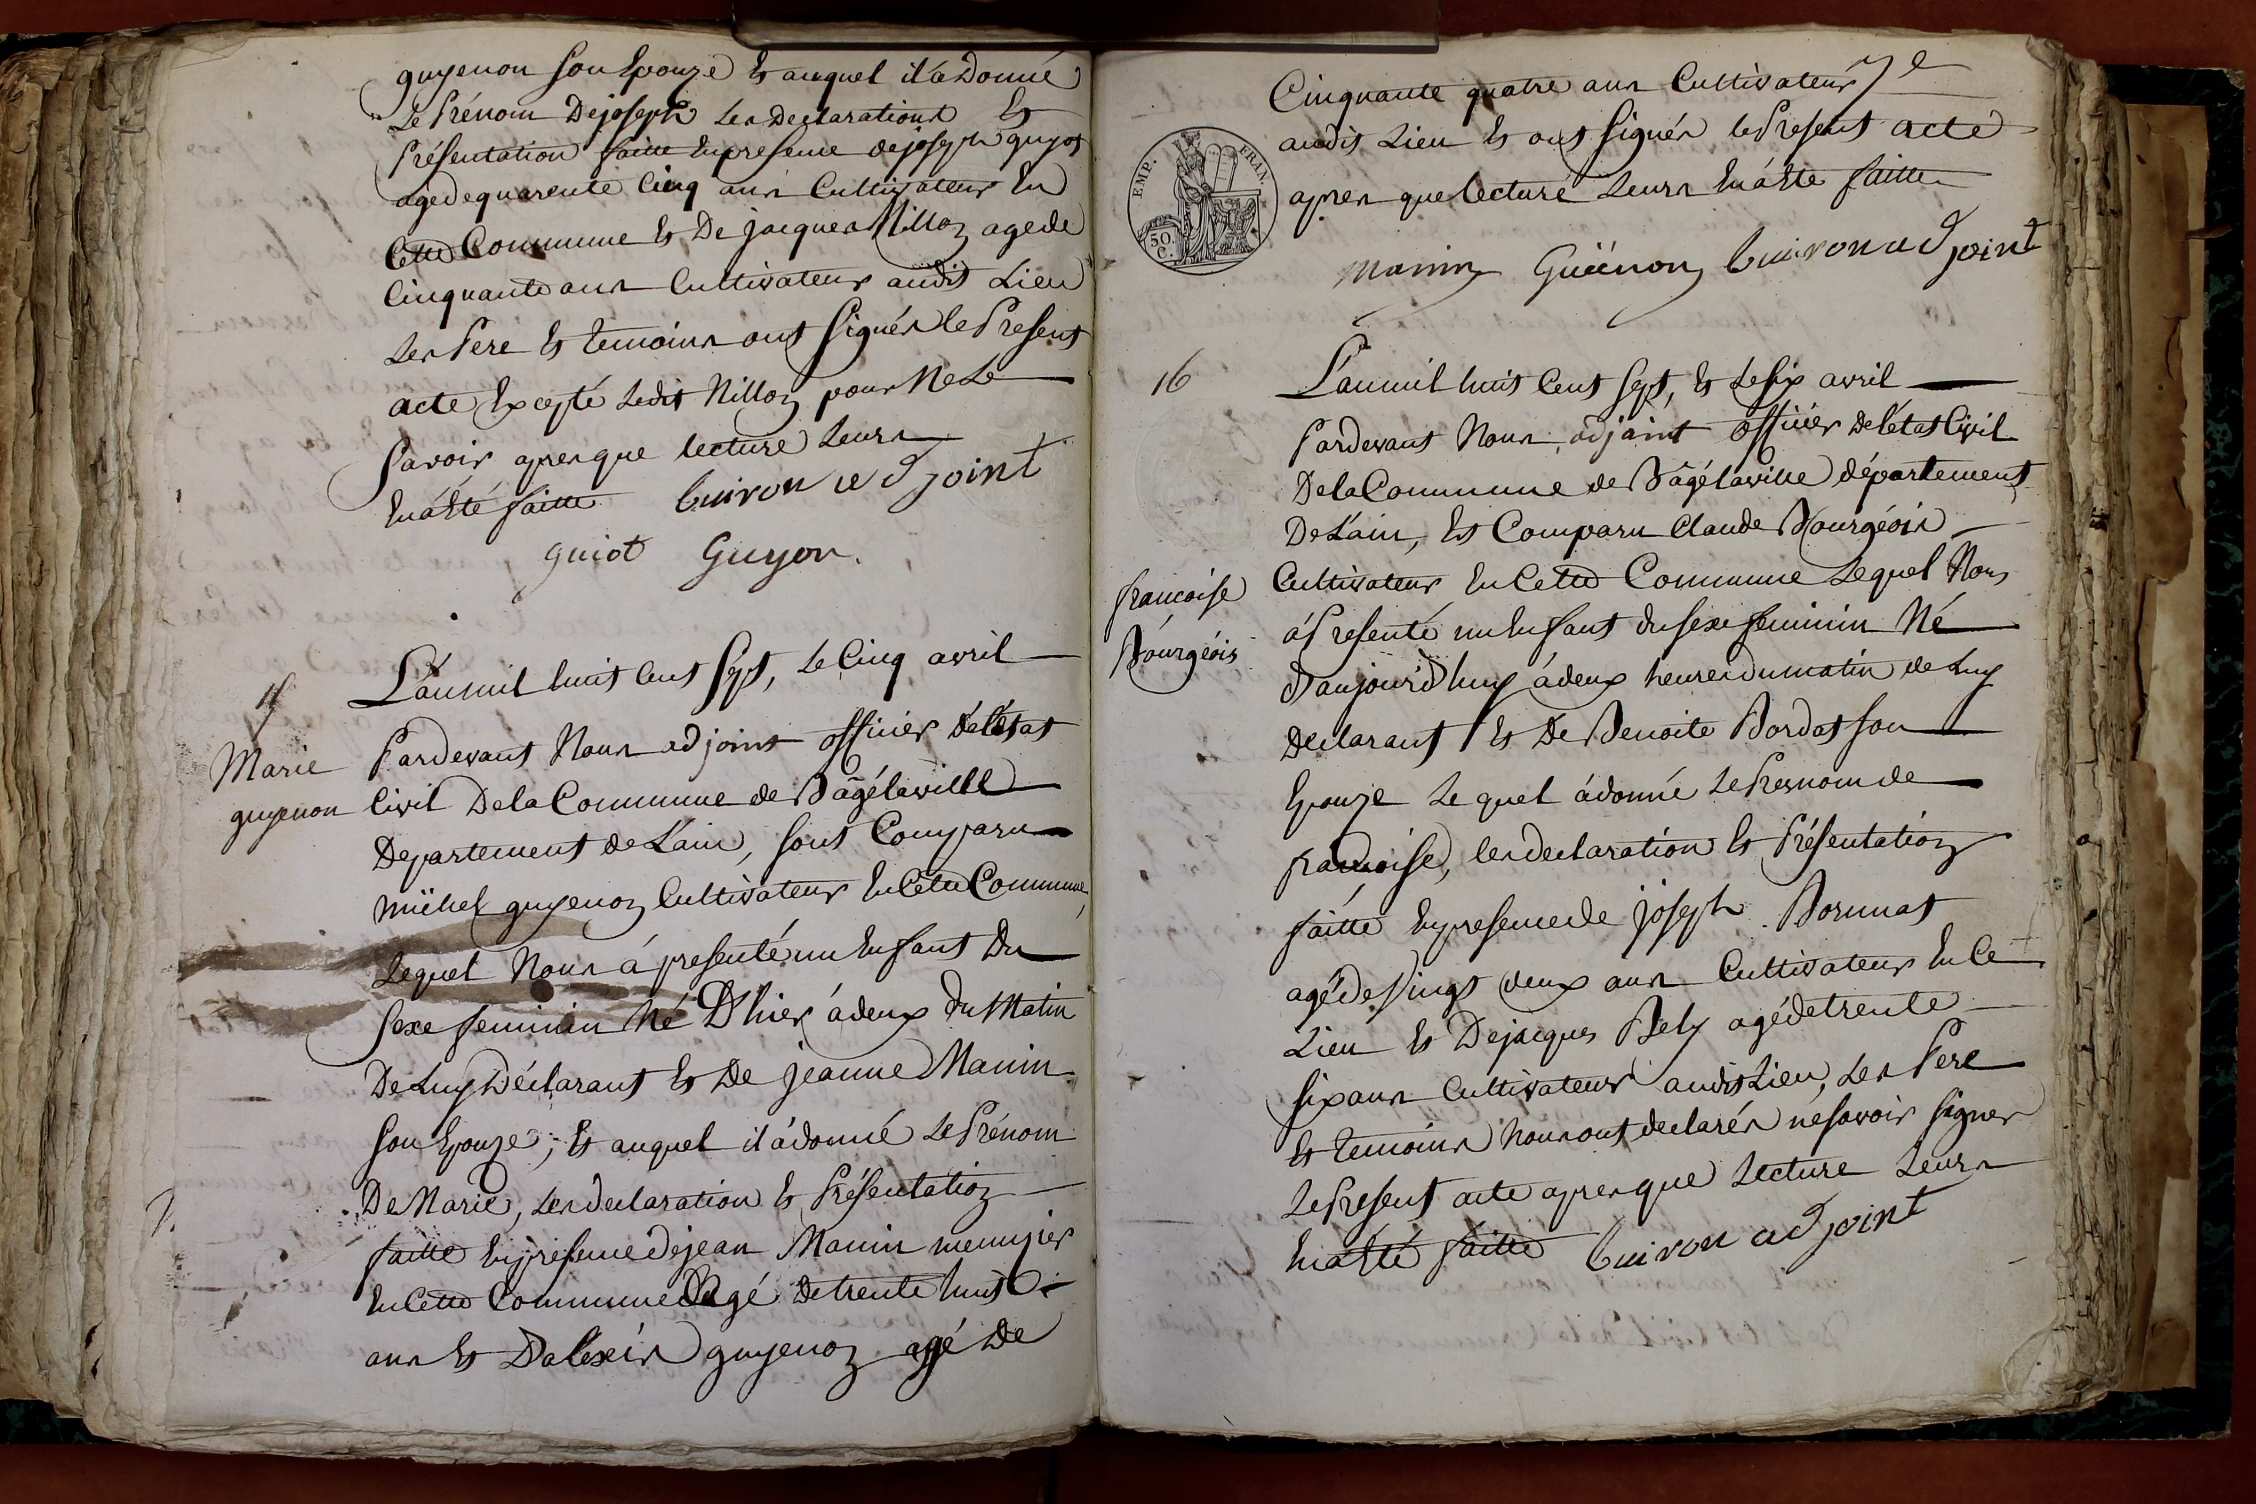 guyenon son Epouze Et auquel il a Donné
Le Prénom De joseph Les declarations Et
Présentation faitte En presence de joseph guyot
agé de quarente Cinq ans Cultivateur En
Cette Commune Et De jacques Nillon agé de
Cinquante ans Cultivateur audit Lieu
Les Pere Et temoins ont Signés le Present
acte Excepté Ledit Nillon pour Ne Le
Savoir apres que lecture Leurs
En á Eté faitte Cuiron adjoint
guiot Guyon.
15
Marie
guyenon
L'an mil huit Cent Sept, Le Cinq avril
Pardevant Nous adjoint officier De L'état
Civil De la Commune de Bâgélaville
Departement de L'ain, sont Comparu
michel guyenon Cultivateur En Cette Commune,
Lequel Nous á presenté un Enfant Du
Sexe feminin Né D'hier á deux du Matin
De Luy Déclarant Et De jeanne Manin
son Epouze; Et auquel il á donné Le Prénom
De Marie, Les declaration Et Présentation
faitte En presence de jean Manin meunier
En Cette Commune agé De trente huit
ans Et D'alexis guyenon agé De
Cinquante quatre ans Cultivateur
audit Lieu Et ont Signés le Present acte
apres que lecture Leurs En á Eté faitte
EMP. FRAN.
50.
C.
manin Guienon Cuiron adjoint
16
francoise
Bourgéois
L'an mil huit Cent Sept, Et Le Six avril
Pardevant Nous adjoint officier De L'état Civil
De la Commune de Bâgélaville département
De L'ain, Est Comparu Claude Bourgéois
Cultivateur En Cette Commune Lequel Nous
á Presenté un Enfant du sexe feminin Né
D'aujourd'huy á deux heures du matin de Luy
Déclarant Et De Benoite Bordat son
Epouze Lequel á donné Le Presnom de
francoise, les declaration Et Présentation
faitte En presence de joseph Bornat
agé de Vingt deux ans Cultivateur En Ce
Lieu Et De jacques Bely agé de trente
Six ans Cultivateur audit Lieu, Les Pere
Et temoins Nous ont declarés ne Savoir signer
Le Present acte apres que Lecture Leurs
En á Eté faitte Cuiron adjoint